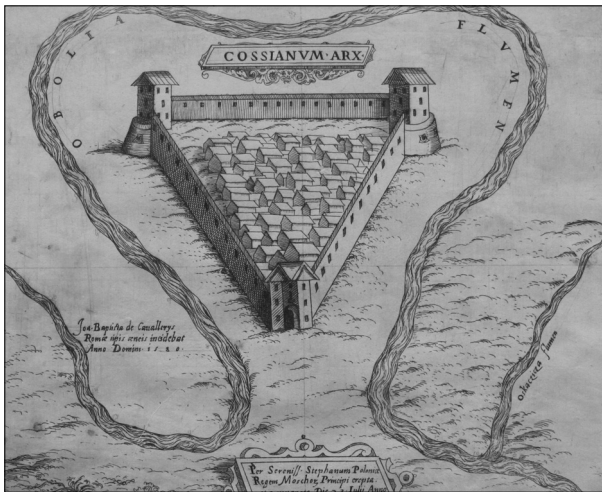 OBOLIA FLVMEN
COSSIANVM·ARX·
Joa. Baptista de Cavallerys
Romæ tipis æneis incidebat
Anno Domini · 1580 ·
flumen
Per Sereniss: Stephanum Poloniæ
Regem, Moschor, Principi erepta
Die 23 Julij Anno